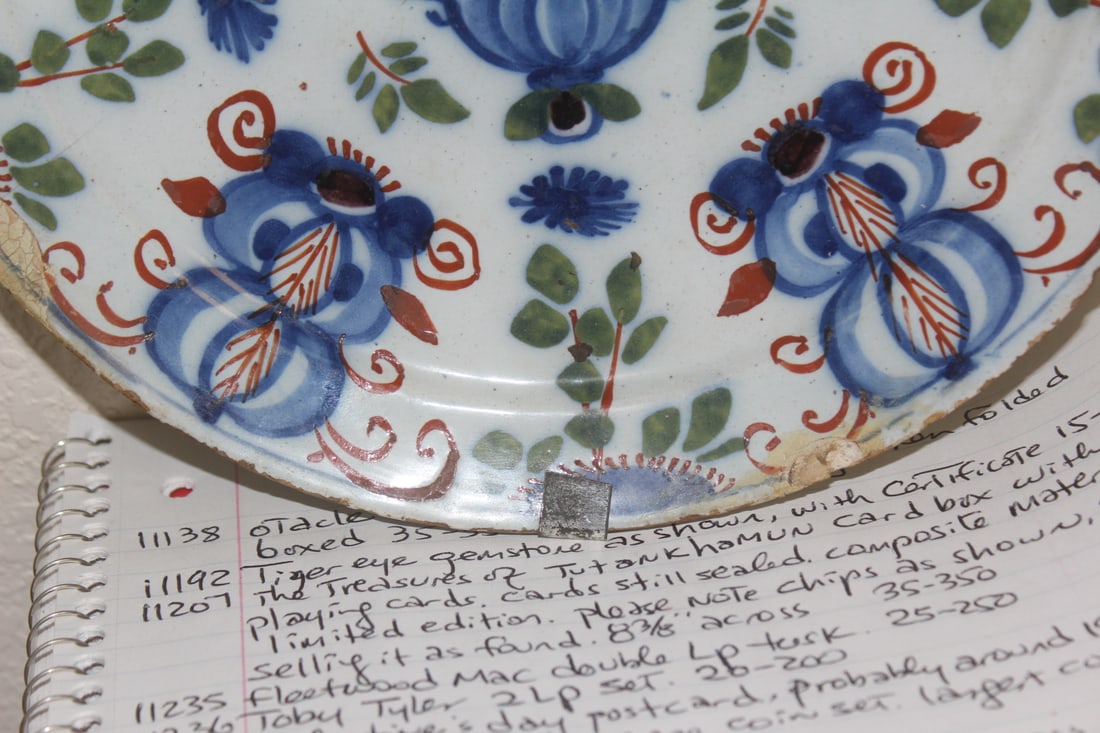 folded
11138 otacle
boxed 35- as shown, with certificate 15-
11192 Tiger eye gemstone
11207 The Treasures of Tutankhamun Card box with
playing cards. Cards still sealed. composite mater
limited edition. Please note chips as shown,
selling it as found. 8 3/8" across 35-350
11235 Fleetwood Mac double Lp-tusk. 25-250
Toby Tyler 2 LP set 20-200
day postcard, probably around 19
coin set. largest co